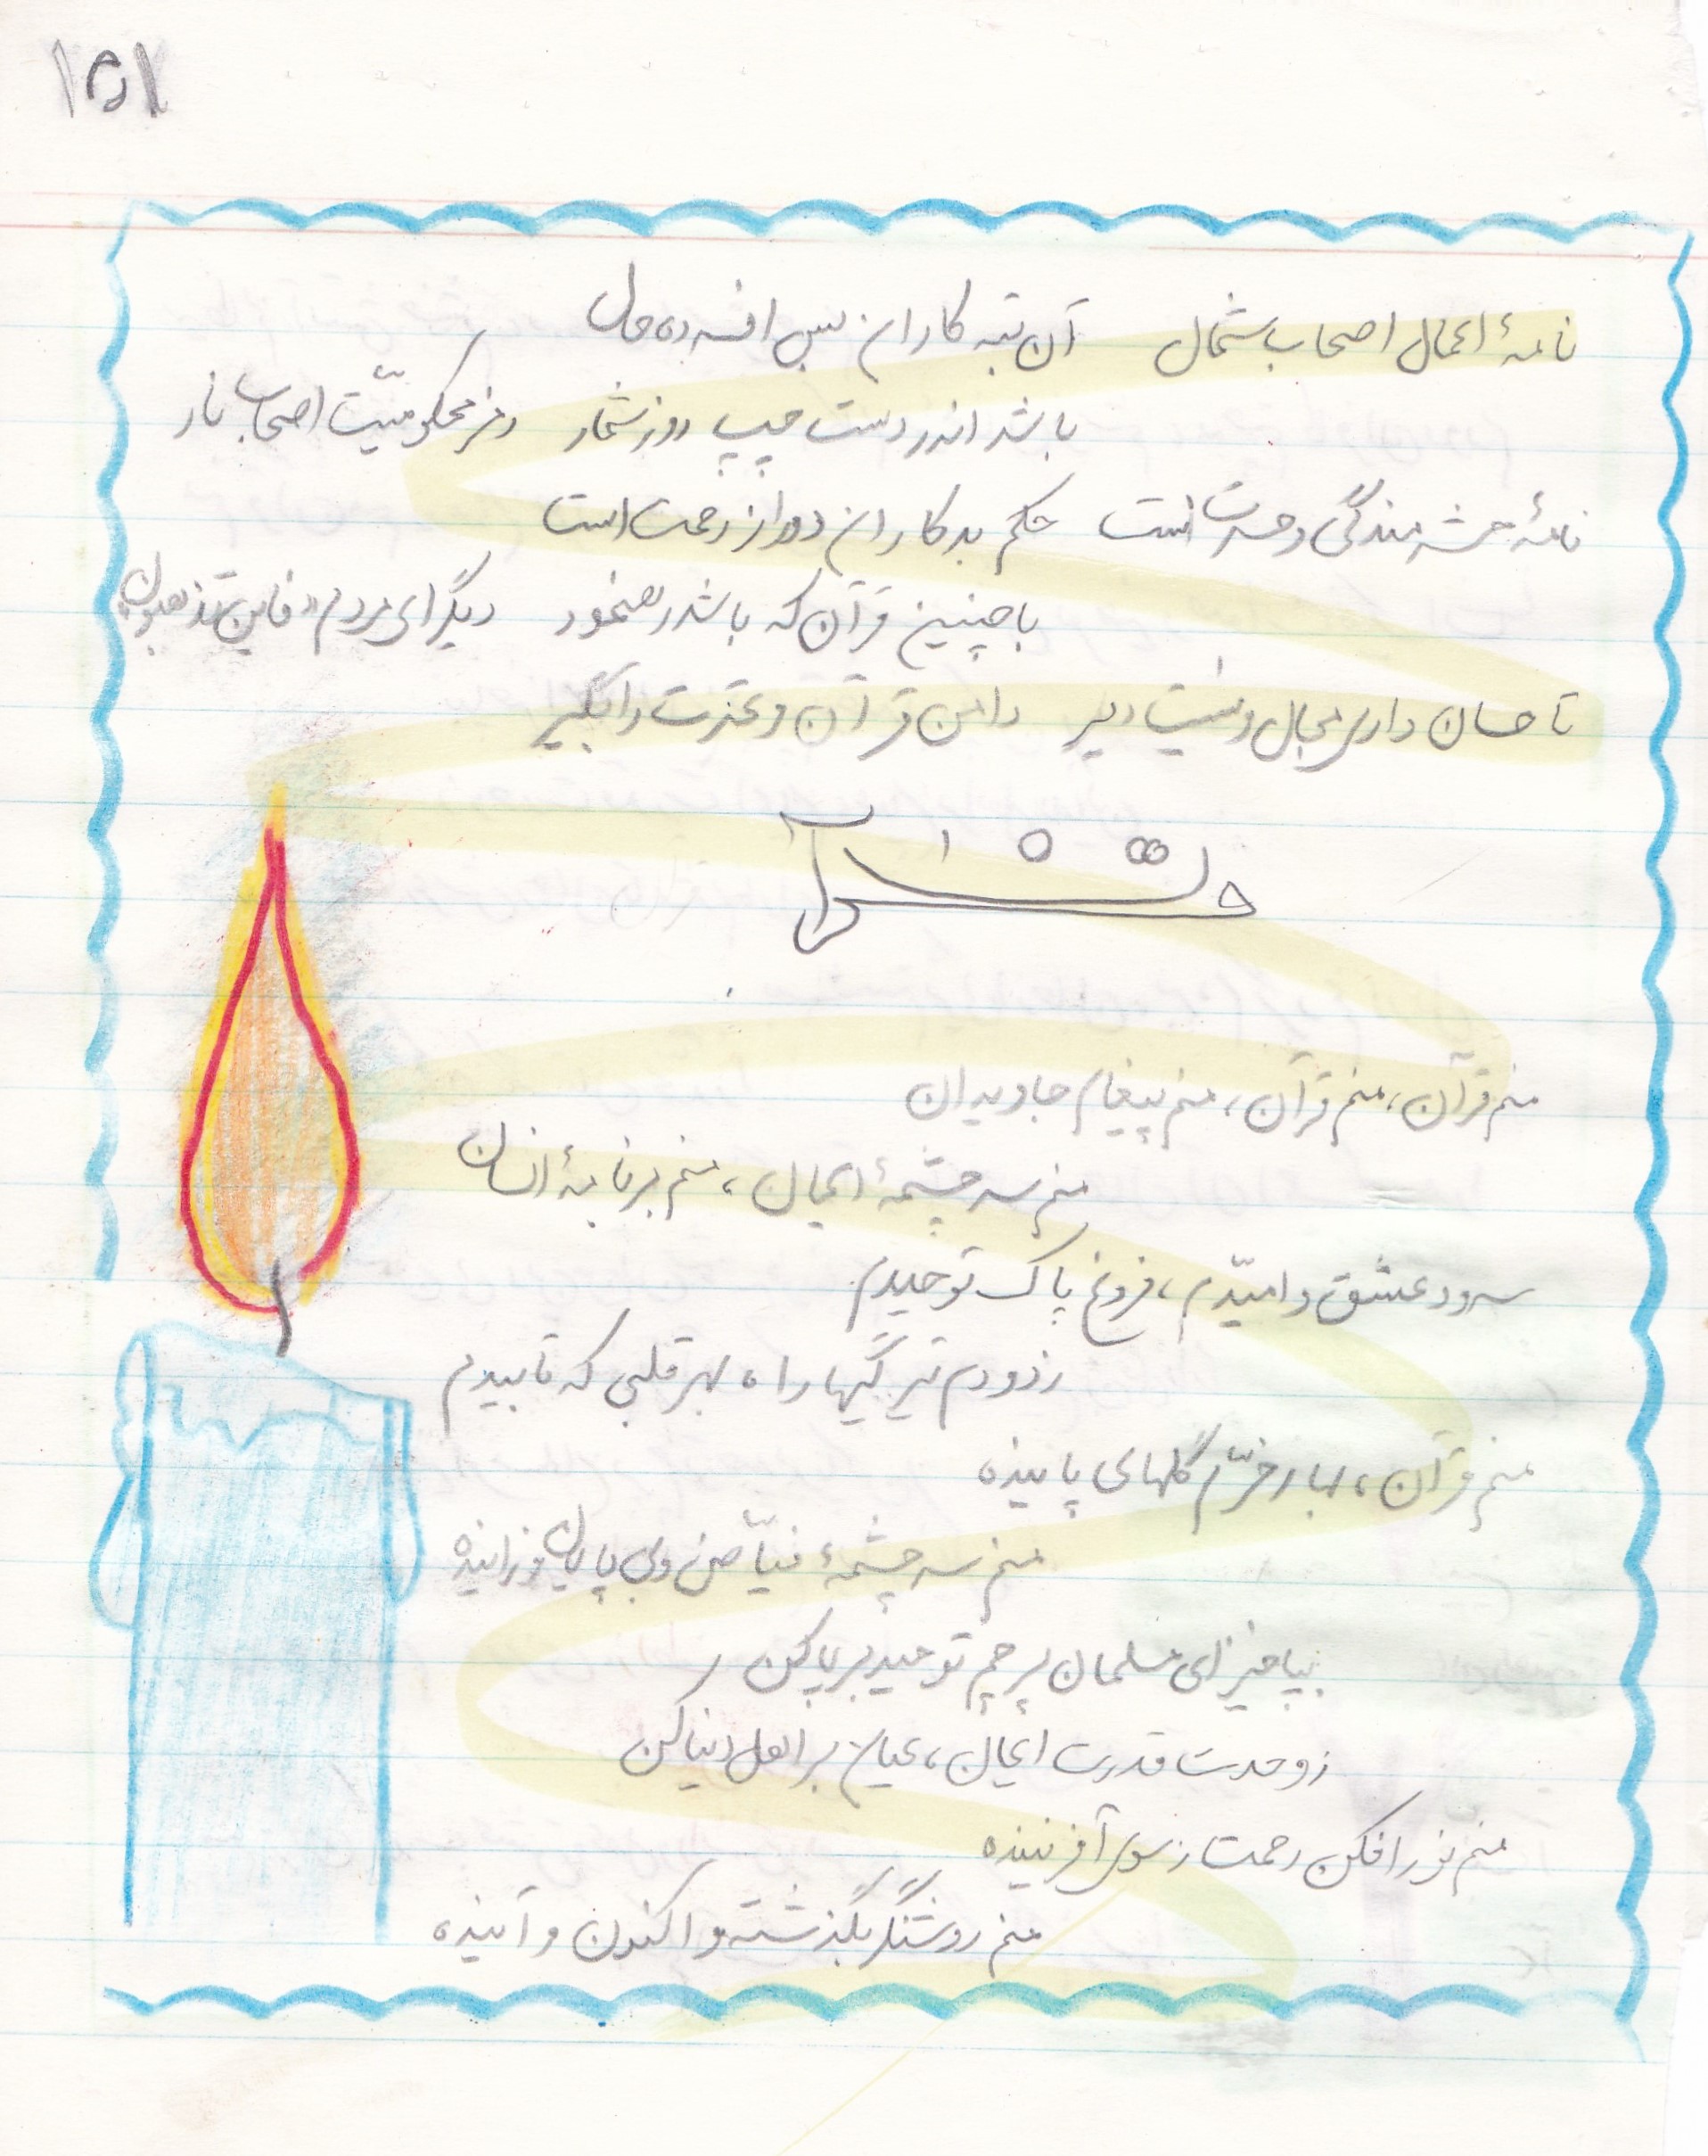 ۱۵۱
نامهٔ اعمال اصحاب شمال آن تبه کاران بس افسرده حال
باشد اندر دست چپ روز شمار رمز محکومیّت اصحاب نار
نامهٔ شرمندگی و حسرت است حکم بدکاران دور از رحمت است
با چنین قرآن که باشد رهنمود دیگر ای مردم «فاین تذهبون»
تا حسان داری مجال و نیست دیر دامن قرآن و عترت را بگیر
منم قرآن، منم قرآن، منم پیغام جاویدان
منم سرچشمهٔ ایمان، منم برنامهٔ انسان
سرود عشق و امیّدم، فروغ پاک توحیدم
زدودم تیرگیها را، بهر قلبی که تابیدم
منم قرآن، بهار خرّم گلهای پاینده
منم سرچشمهٔ فیّاض نور بی پایان
بپاخیز ای مسلمان پرچم توحید بر پا کن
ز وحدت قدرت ایمان، عیان بر اهل دنیا کن
منم نور افکن رحمت ز سوی آفریننده
منم روشنگر بگذشته و اکنون و آینده